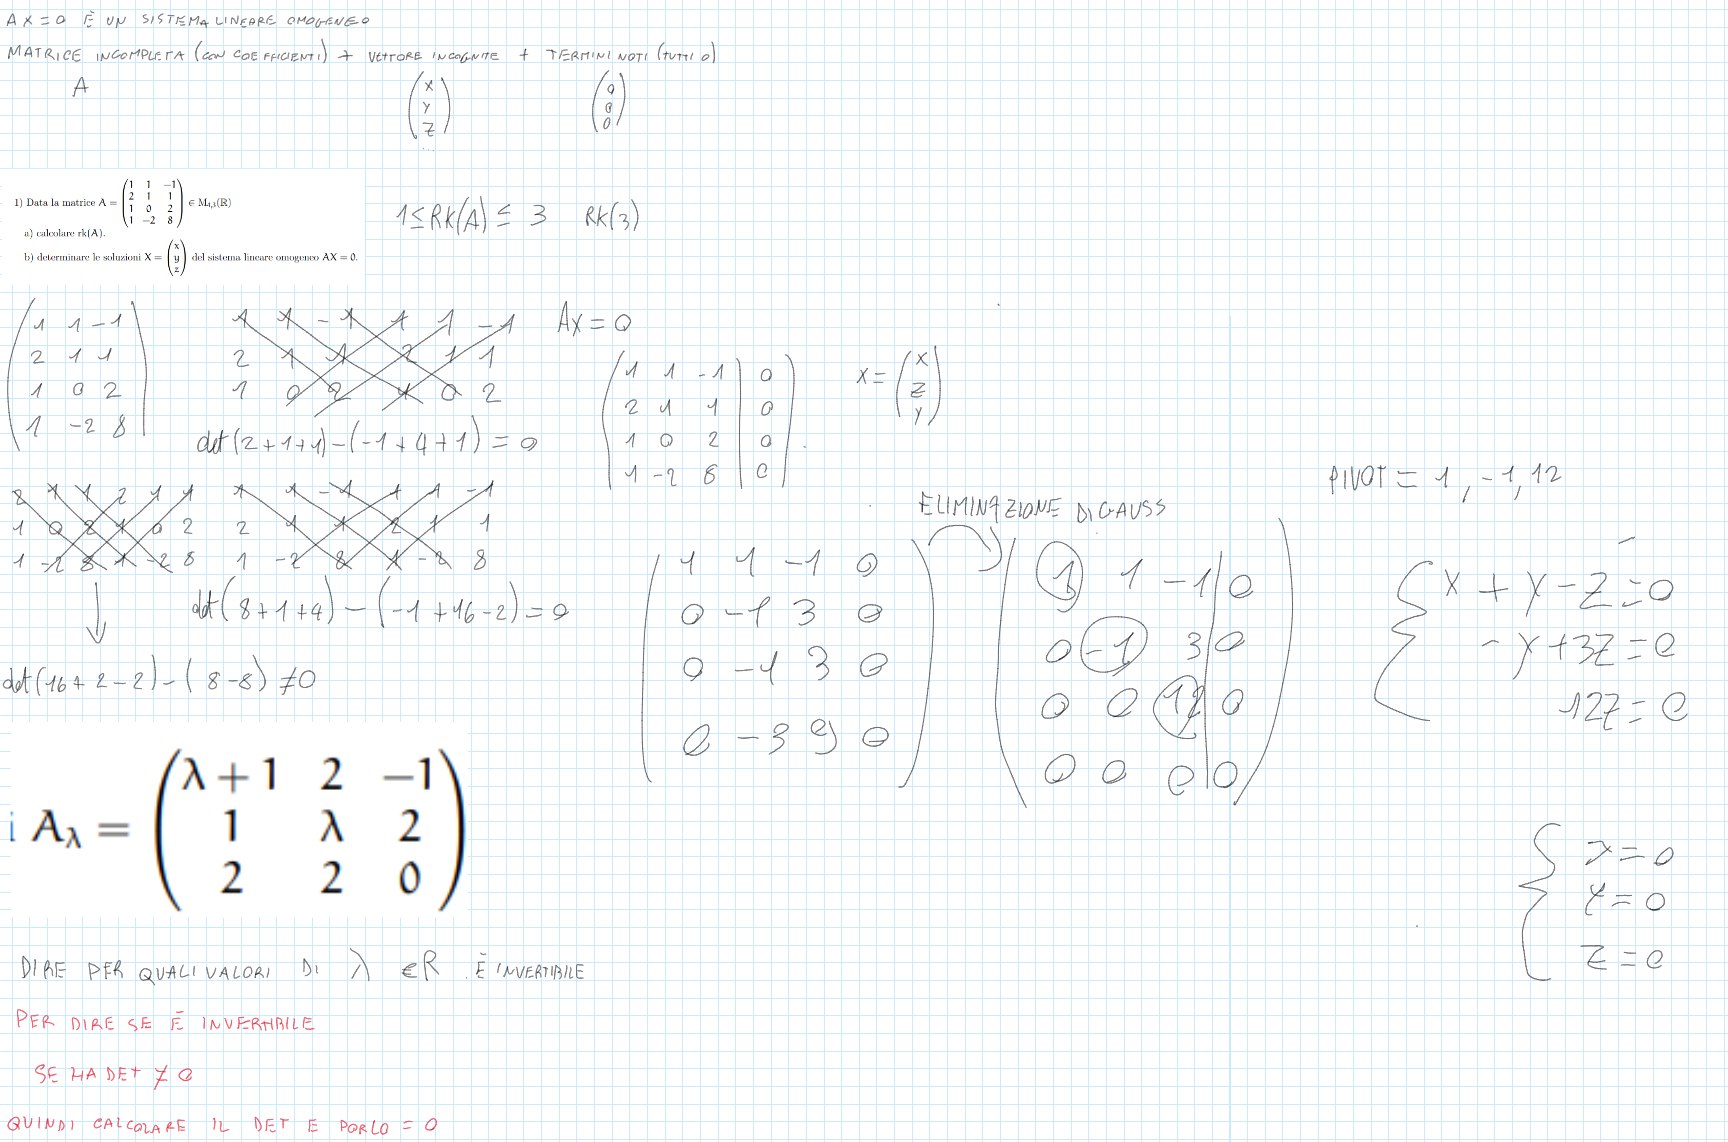 AX=0 È UN SISTEMA LINEARE OMOGENEO
MATRICE INCOMPLETA (CON COEFFICIENTI) + VETTORE INCOGNITE + TERMINI NOTI (TUTTI 0)
A (x y z ...) (0 0 0)
1) Data la matrice A = (1 1 −1 2 1 1 1 0 2 1 −2 8) ∈ M4,3(ℝ)
a) calcolare rk(A).
b) determinare le soluzioni X = (x y z) del sistema lineare omogeneo AX = 0.
1 ≤ RK(A) ≤ 3 RK(3)
1 1 -1
2 1 1
1 0 2
1 -2 8
1 1 -1 1 1 -1
2 1 1 2 1 1
1 0 2 1 0 2
det(2+1+1)-(-1+4+1)=0
AX=0
1 1 -1 | 0
2 1 1 | 0
1 0 2 | 0
1 -2 8 | 0
X = (x z y)
2 1 1 2 1 1
1 0 2 1 0 2
1 -2 8 1 -2 8
det(16+2-2)-(8-8)≠0
1 1 -1 1 1 -1
2 1 1 2 1 1
1 -2 8 1 -2 8
det(8+1+4)-(-1+16-2)=0
ELIMINAZIONE DI GAUSS
1 1 -1 0
0 -1 3 0
0 -1 3 0
0 -3 9 0
1 1 -1 | 0
0 -1 3 | 0
0 0 12 | 0
0 0 0 | 0
PIVOT = 1, -1, 12
x + y - z = 0
- y + 3z = 0
12z = 0
x = 0
y = 0
z = 0
i Aλ = (λ+1 2 −1 1 λ 2 2 2 0)
DIRE PER QUALI VALORI DI λ ∈ R È INVERTIBILE
PER DIRE SE È INVERTIBILE
SE HA DET ≠ 0
QUINDI CALCOLARE IL DET E PORLO = 0